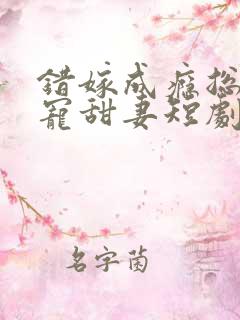 錯嫁成癮總
寵甜妻短劇
名字菌